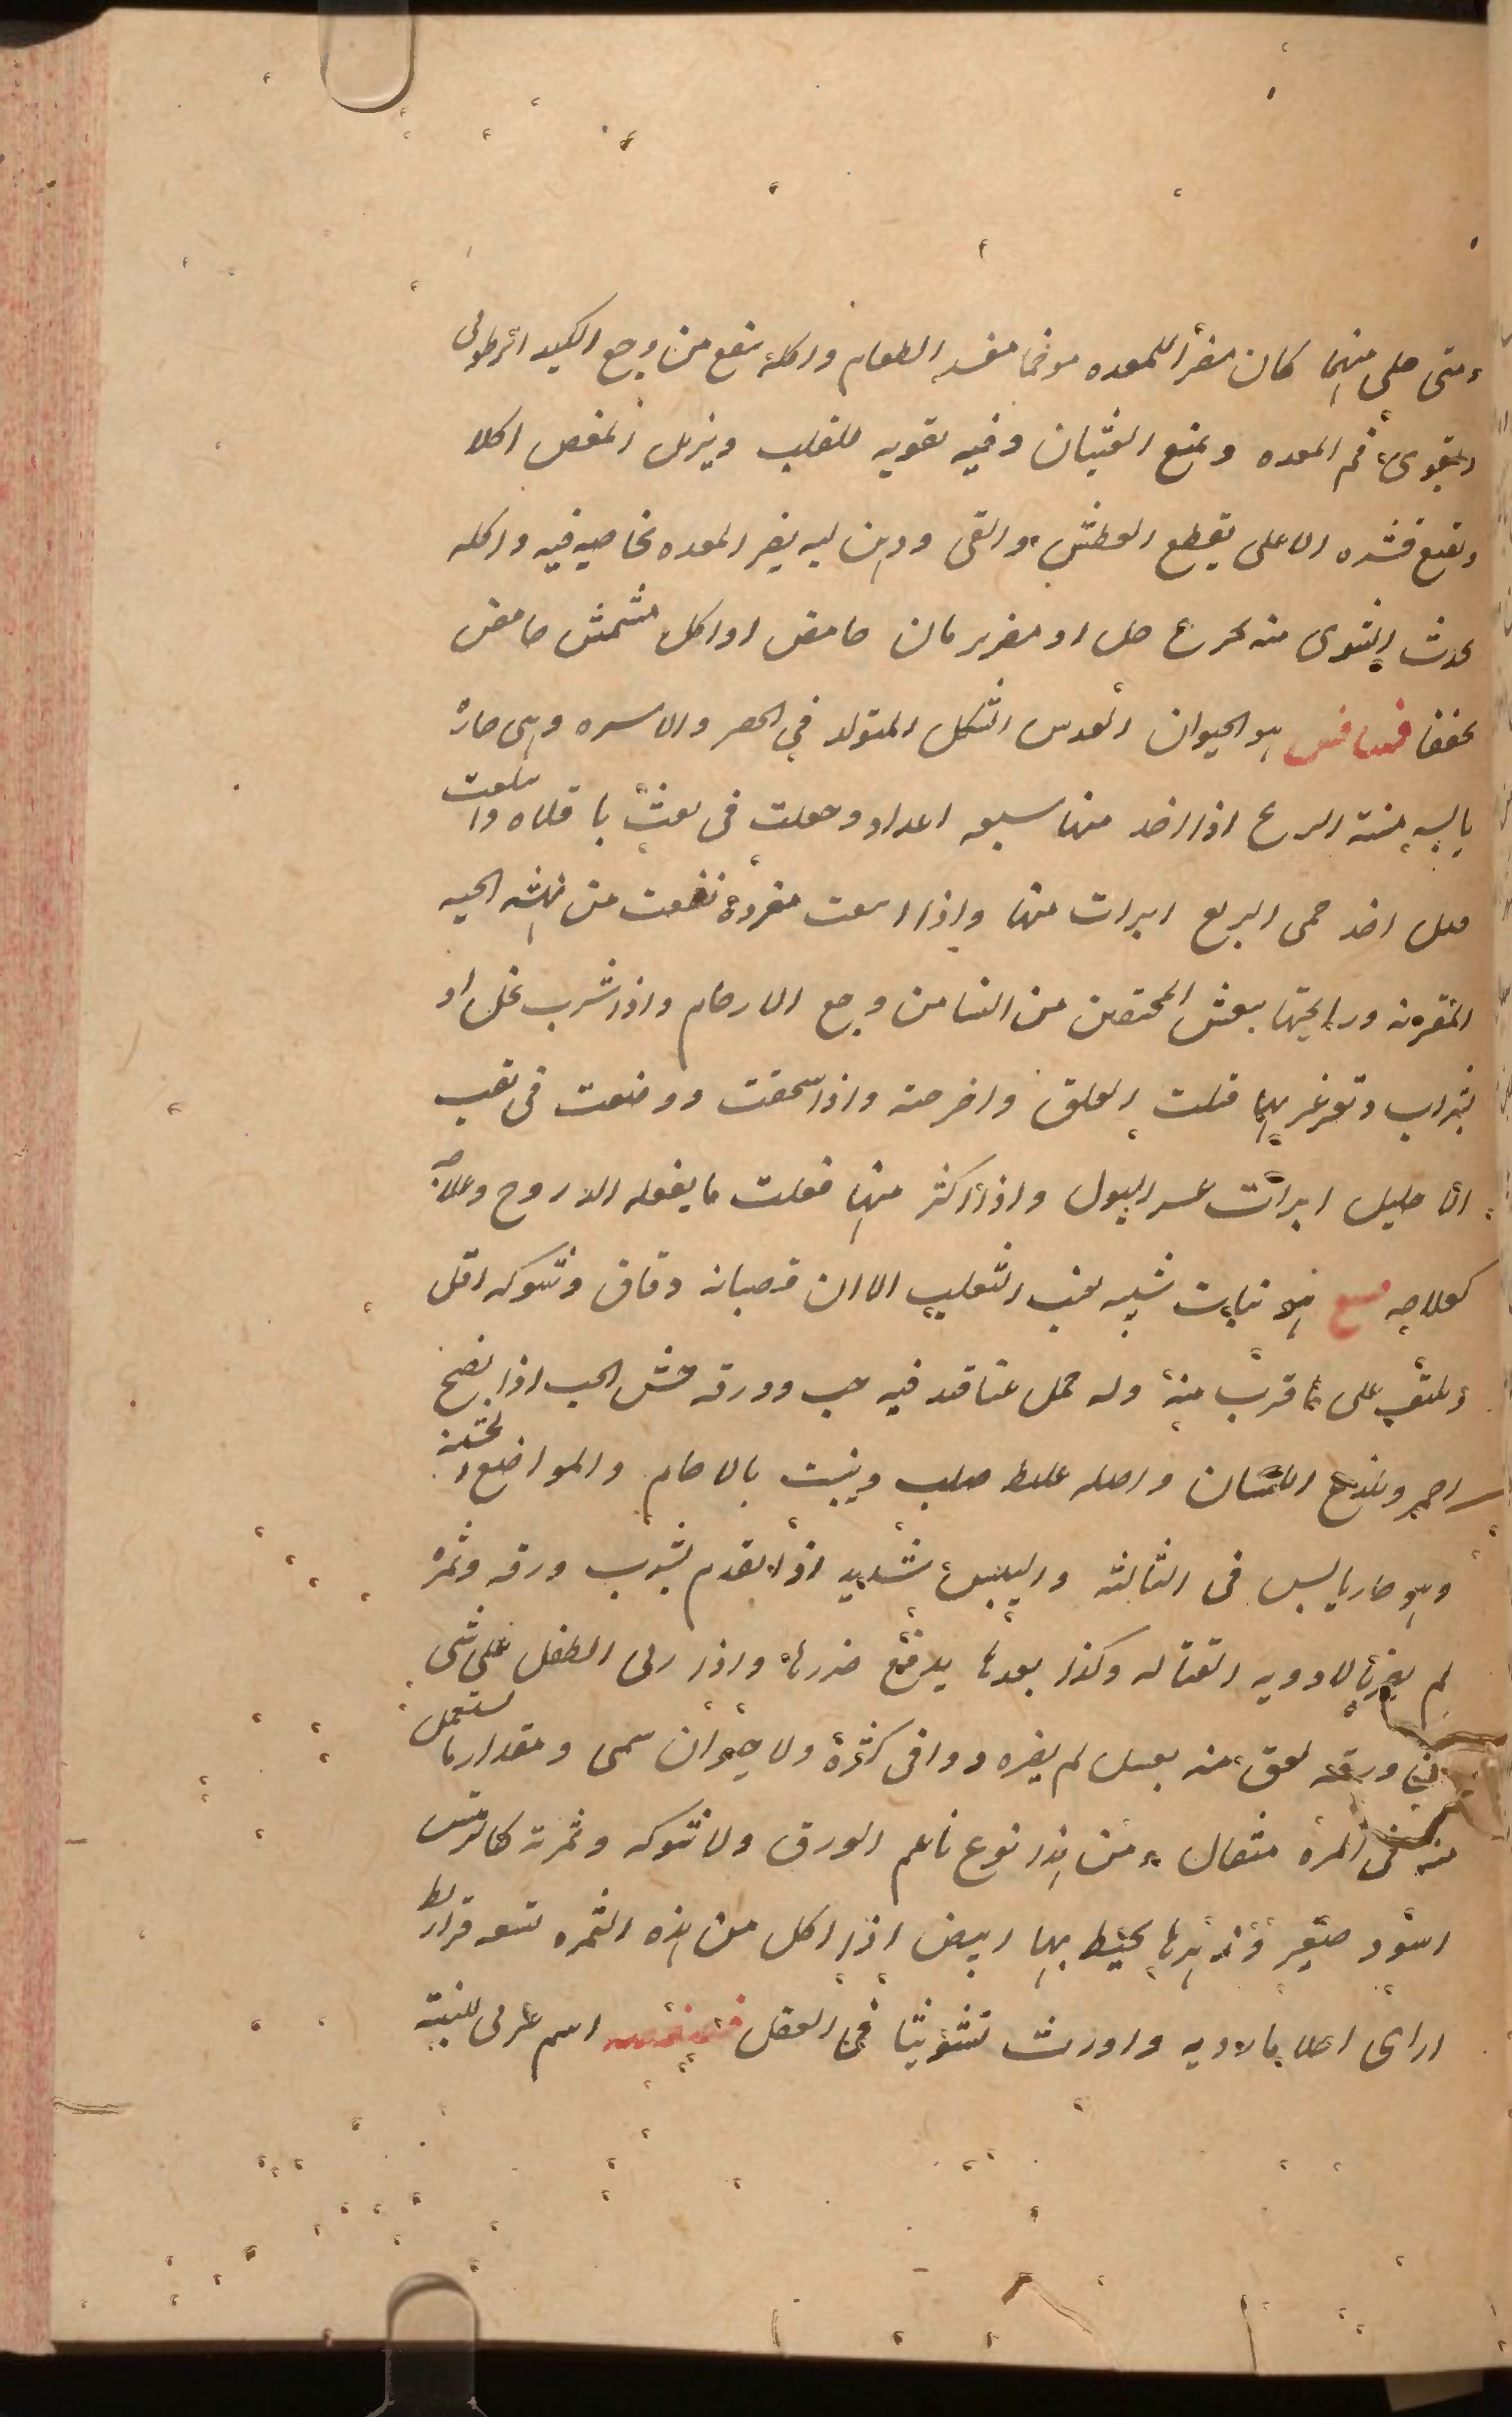 ومتى خلى منهما كان مضرا للمعده موخما مفسد الطعام واكله ينفع من وجع الكبد الرطوبى
ويقوى فم المعده ويمنع الغثيان وفيه تقويه للقلب ويزيل المغص اكلا
ونقيع قشره الاعلى يقطع العطش والقى ودهن لبه يضر المعده بخاصيه فيه واكله
يحدث الشرى منه تجرع خل او مضر رمان حامض او اكل مشمش حامض
مجففا فسافس هو الحيوان العدسى الشكل المتولد فى الحصر والاسره وهى حاره
يابسه منتنة الريح اذا اخذ منها سبعه اعداد وجعلت فى باقلاه وابتلعت
قبل اخذ حمى الربع ابرات منها واذا ابتلعت مفردة نفعت من نهشه الحيه
المقرنه ورايحتها ينعش المختنقين من النسا من وجع الارحام واذا شرب بخل او
بشراب وتغرغر بها قتلت العلق واخرجته واذا سحقت ووضعت فى ثقب
الاحليل ابرات عسر البول واذا اكثر منها فعلت ما يفعله الذروح وعلاجه
كعلاجه فسغ هو نبات شبيه بعنب الثعلب الا ان قضبانه دقاق وشوكه اقل
ويلتف على ما قرب منه وله حمل عناقيد فيه حب وورقه خشن الحب اذا نضج
احمر ويلذع اللسان واصله غليظ صلب وينبت بالاجام والمواضع الخشنة
وهو حار يابس فى الثالثه واليبس شديد اذا تقدم بشرب ورقه وثمره
لم يضر بالادويه القتاله وكذا بعدها يدفع ضررها واذا ربى الطفل على شى
من ورقه لعق منه بعسل لم يضره دوا فى كثرة ولا حيوان سمى ومقدار ما يستعمل
منه فى المره مثقال ومن هذا نوع ناعم الورق ولا شوكه وثمرته كالترمس
اسود صغير وزهرها يحيط بها ابيض اذا اكل من هذه الثمره تسعه قراريط
اراى احلاما رديه واورث تشويشا فى العقل اسم عربى للنبته